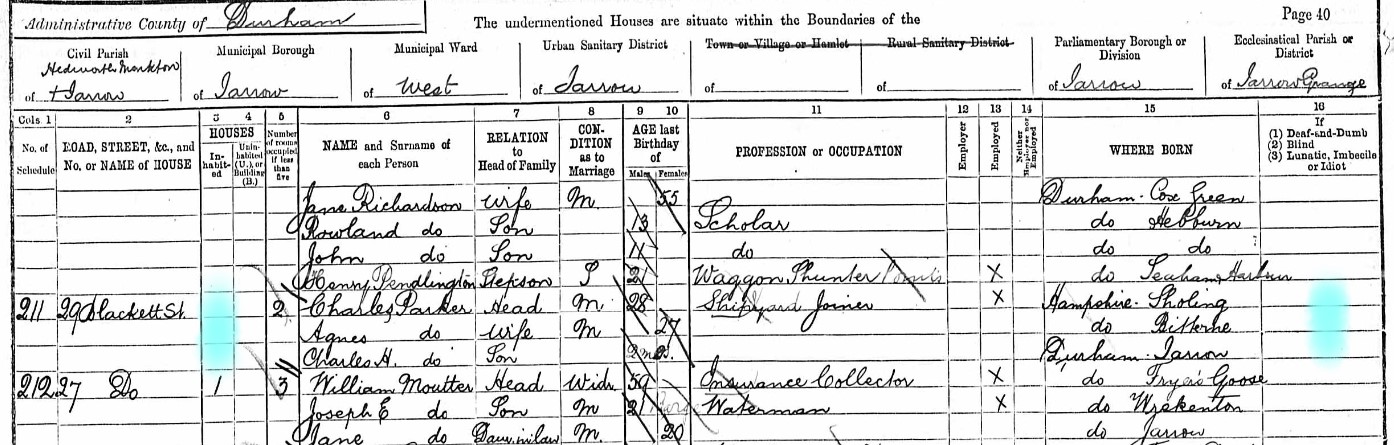 Administrative County of Durham
The undermentioned Houses are situate within the Boundaries of the
Page 40
Civil Parish of Hedworth Monkton + Jarrow
Municipal Borough of Jarrow
Municipal Ward of West
Urban Sanitary District of Jarrow
Town or Village or Hamlet of
Rural Sanitary District of
Parliamentary Borough or Division of Jarrow
Ecclesiastical Parish or District of Jarrow Grange
Cols. 1 2 3 4 5 6 7 8 9 10 11 12 13 14 15 16
No. of Schedule
ROAD, STREET, &c., and No. or NAME of HOUSE
HOUSES
Inhabited
Uninhabited (U.), or Building (B.)
Number of rooms occupied if less than five
NAME and Surname of each Person
RELATION to Head of Family
CONDITION as to Marriage
AGE last Birthday of
Males Females
PROFESSION or OCCUPATION
Employer
Employed
Neither Employer nor Employed
WHERE BORN
If (1) Deaf-and-Dumb (2) Blind (3) Lunatic, Imbecile or Idiot
Jane Richardson Wife M. 55 Durham - Cox Green
Rowland do Son 13 Scholar do Hebburn
John do Son 11 do do do
Henry Pendlington Stepson S 21 Waggon Shunter X do Seaham Harbour
211 29 Blackett St. 2 Charles Parker Head M. 28 Shipyard Joiner X Hampshire - Sholing
Agnes do Wife M 27 do Bitterne
Charles H. do Son Durham - Jarrow
212 27 Do 1 3 William Moutter Head Widr 59 Insurance Collector X do Fryer's Goose
Joseph E do Son M 21 Waterman X do Wrekenton
Jane do Daur in law M. 20 do Jarrow